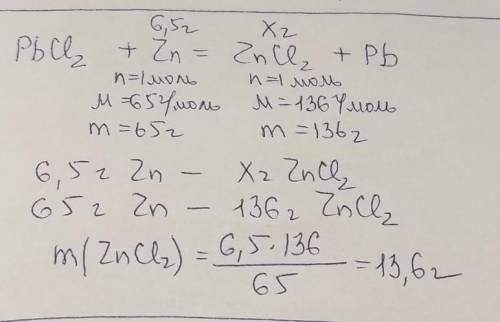 6,5г xг
PbCl₂ + Zn = ZnCl₂ + Pb
n=1моль n=1моль
M=65г/моль M=136г/моль
m=65г m=136г
6,5г Zn – xг ZnCl₂
65г Zn – 136г ZnCl₂
m(ZnCl₂) = 6,5·136/65 = 13,6г